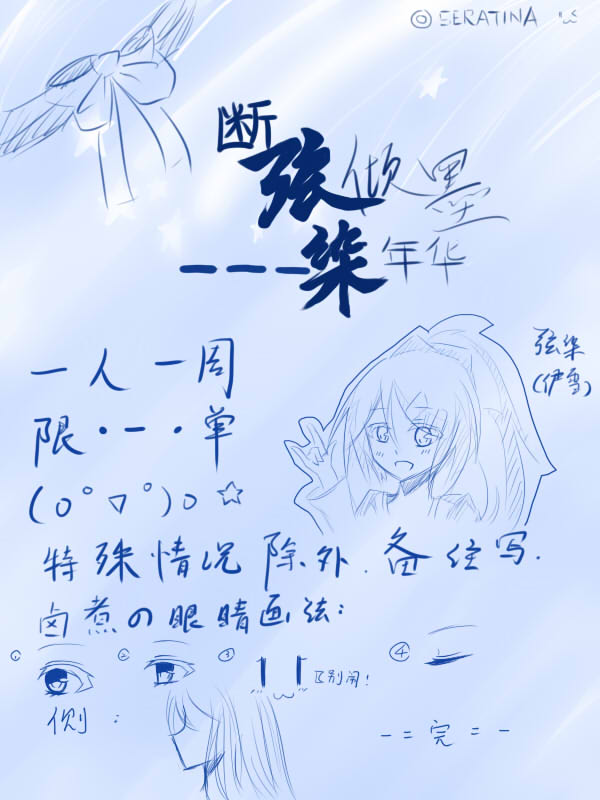 © SERATINA
断弦倾墨
---柒年华
弦柒
(伊雪)
一人一周
限·一·单
(o°▽°)o☆
特殊情况除外.备注写.
卤煮の眼睛画法:
① ② ③ ④
别闹!
侧:
-=完=-